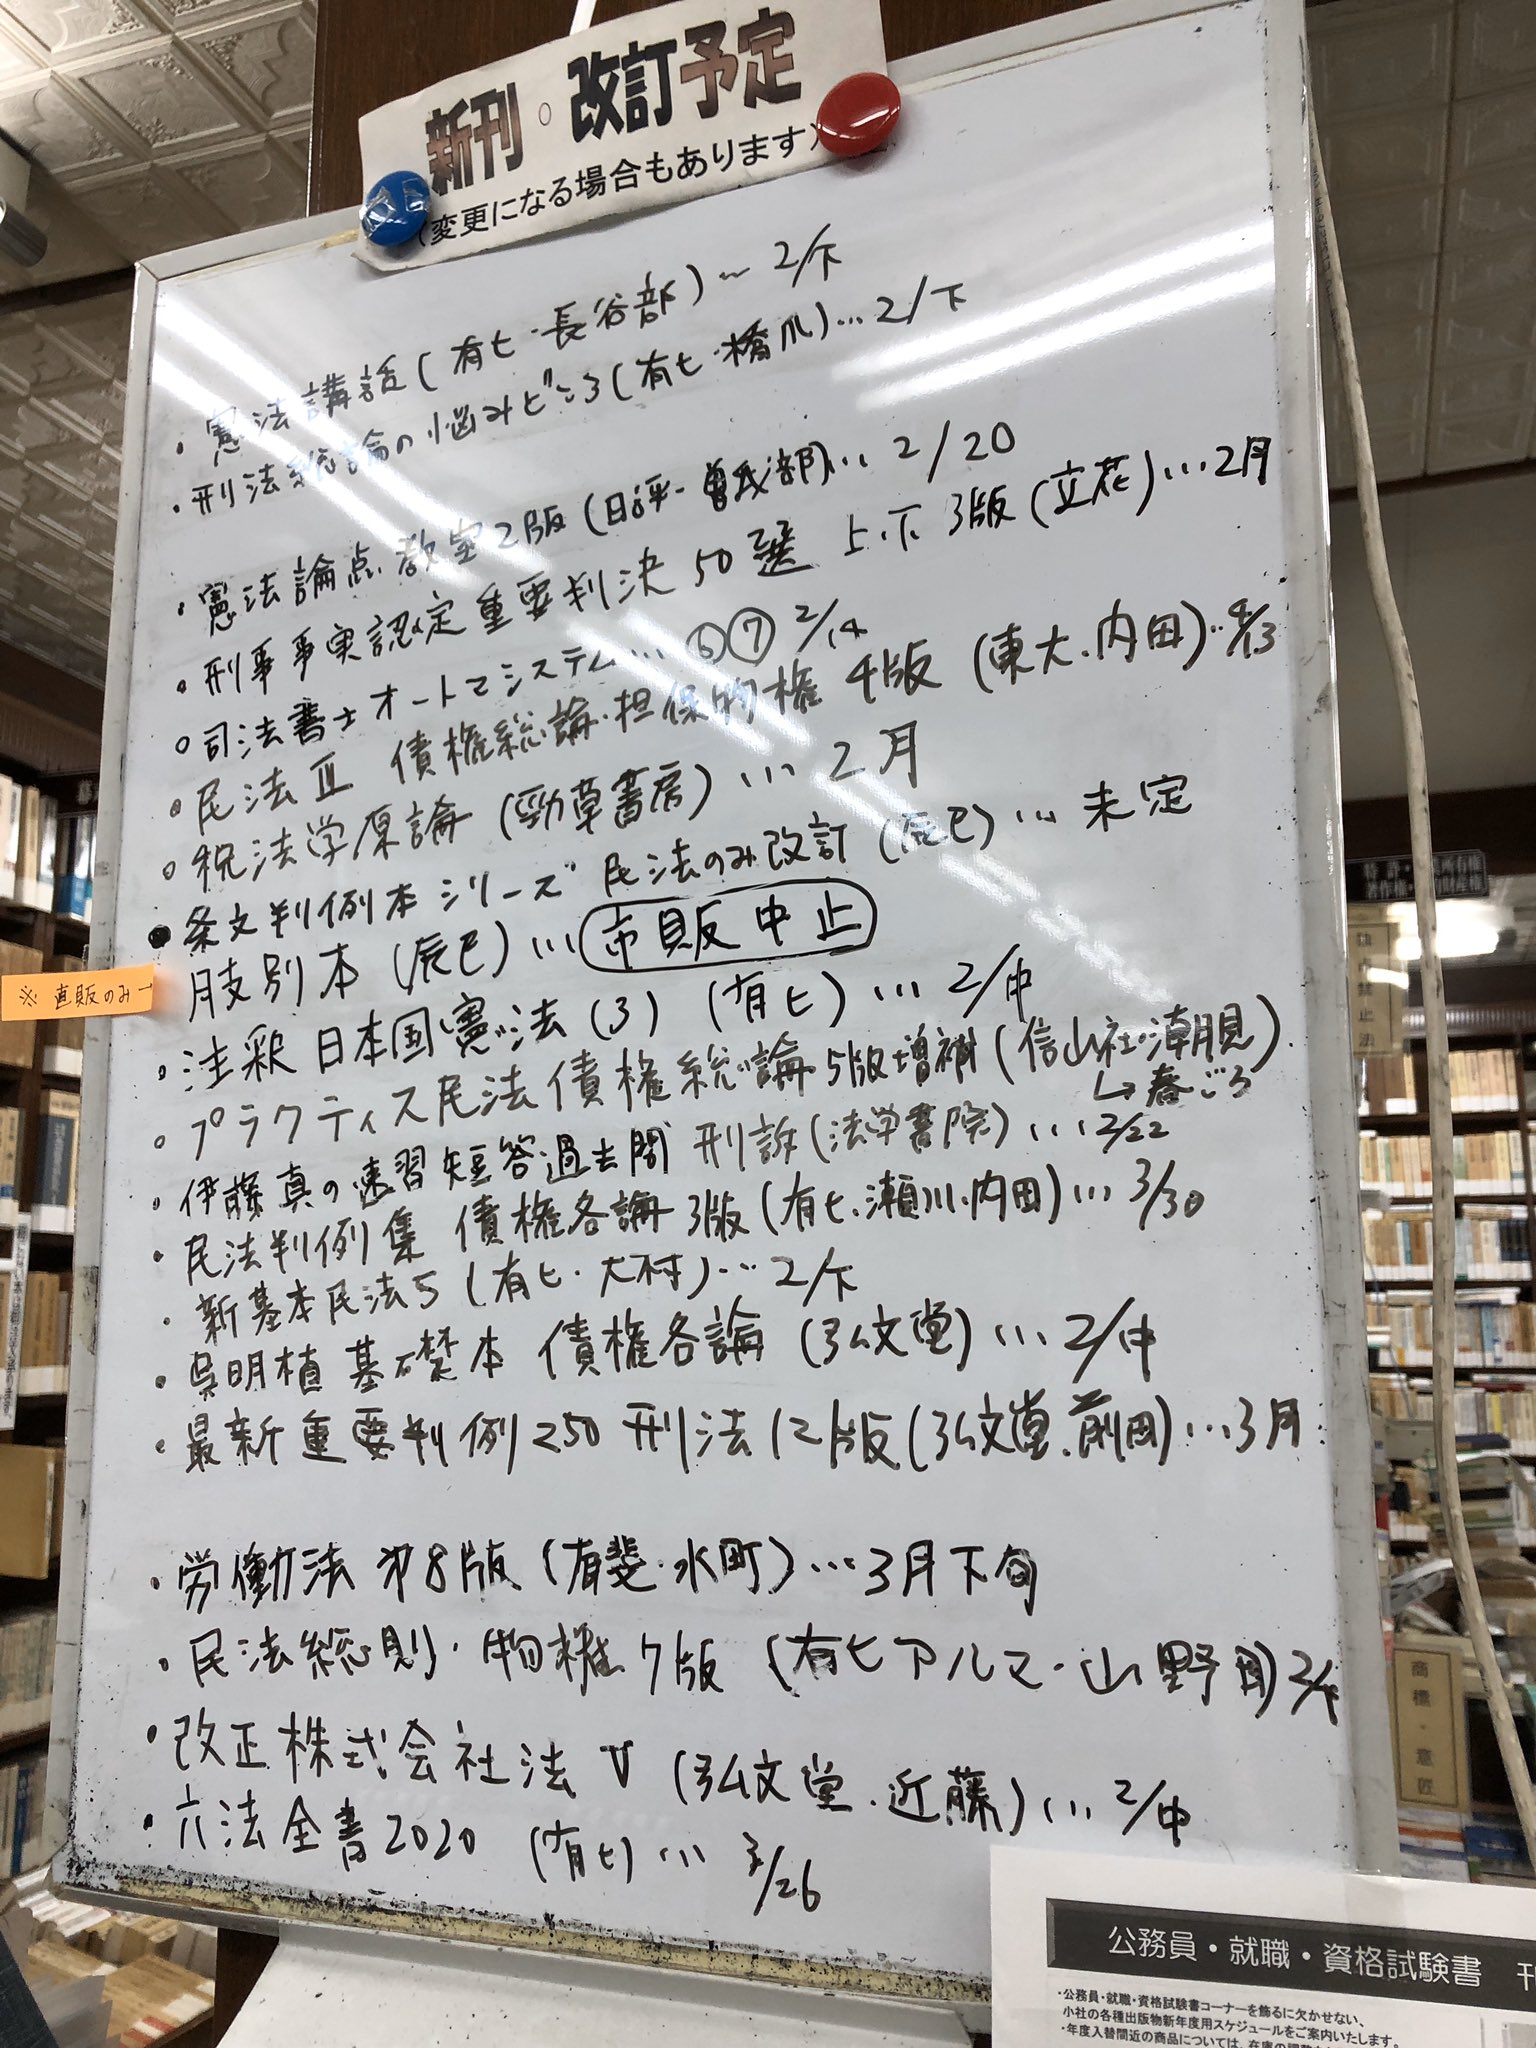 新刊・改訂予定
(変更になる場合もあります)
・憲法講話(有ヒ・長谷部)… 2/下
・刑法総論の悩みどころ(有ヒ・橋爪)… 2/下
・憲法論点教室2版(日評・曽我部)… 2/20
・刑事事実認定重要判決50選 上・下 3版(立花)… 2月
・司法書士オートマシステム… ⑥⑦ 2/14
・民法Ⅲ 債権総論・担保物権 4版(東大・内田)… 4/13
・税法学原論(勁草書房)… 2月
・条文判例本シリーズ 民法のみ改訂(辰已)… 未定
※直販のみ→
肢別本(辰已)… 市販中止
・注釈日本国憲法(3)(有ヒ)… 2/中
・プラクティス民法債権総論5版増補(信山社・潮見)
↳春ごろ
・伊藤真の速習短答過去問 刑訴(法学書院)… 2/22
・民法判例集 債権各論3版(有ヒ・瀬川・内田)… 3/30
・新基本民法5(有ヒ・大村)… 2/下
・呉明植基礎本 債権各論(弘文堂)… 2/中
・最新重要判例250 刑法12版(弘文堂・前田)… 3月
・労働法 第8版(有斐・水町)… 3月下旬
・民法総則・物権7版(有ヒアルマ・山野目)
・改正株式会社法Ⅴ(弘文堂・近藤)… 2/中
・六法全書2020(有ヒ)… 3/26
公務員・就職・資格試験書 刊
・公務員・就職・資格試験書コーナーを飾るに欠かせない、
小社の各種出版物新年度用スケジュールをご案内いたします。
・年度入替間近の商品については、在庫の調整
商標・意匠